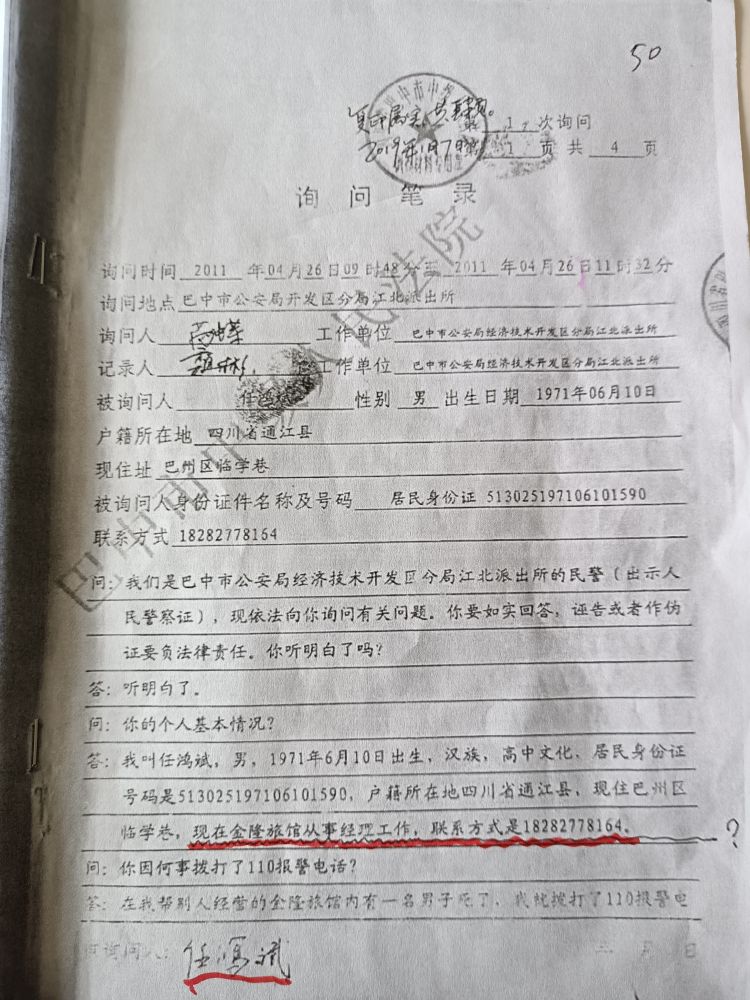 50
第 1 次询问
2019年1月7日 第 1 页 共 4 页
询问笔录
询问时间 2011 年04月26日09时48分至 2011 年04月26日11时32分
询问地点 巴中市公安局开发区分局江北派出所
询问人 工作单位 巴中市公安局经济技术开发区分局江北派出所
记录人 工作单位 巴中市公安局经济技术开发区分局江北派出所
被询问人 任鸿斌 性别 男 出生日期 1971年06月10日
户籍所在地 四川省通江县
现住址 巴州区临学巷
被询问人身份证件名称及号码 居民身份证 513025197106101590
联系方式 18282778164
问：我们是巴中市公安局经济技术开发区分局江北派出所的民警（出示人
民警察证），现依法向你询问有关问题。你要如实回答，诬告或者作伪
证要负法律责任。你听明白了吗？
答：听明白了。
问：你的个人基本情况？
答：我叫任鸿斌，男，1971年6月10日出生，汉族，高中文化，居民身份证
号码是513025197106101590，户籍所在地四川省通江县，现住巴州区
临学巷，现在金隆旅馆从事经理工作，联系方式是18282778164。 ?
问：你因何事拨打了110报警电话？
答：在我帮别人经营的金隆旅馆内有一名男子死了，我就拨打了110报警电
被询问人：任鸿斌 年 月 日